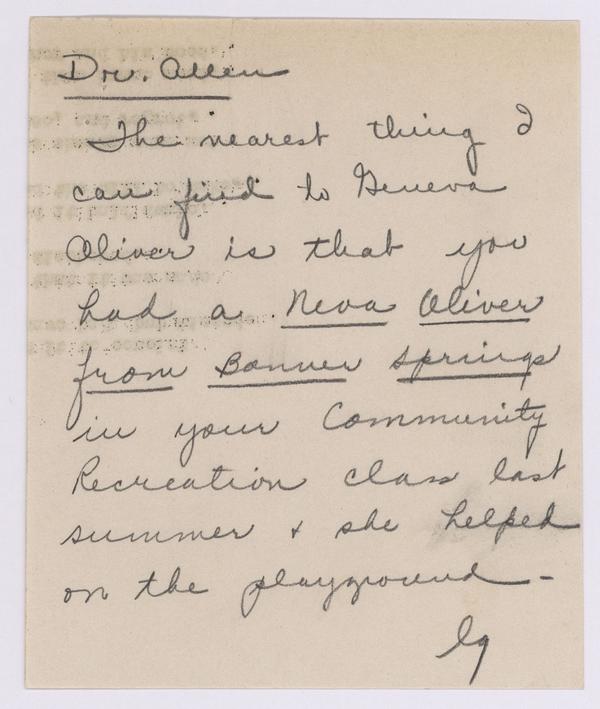 Dr. Allen
The nearest thing I
can find to Geneva
Oliver is that you
had a Neva Oliver
from Bonner Springs
in your Community
Recreation class last
summer + she helped
on the playground -